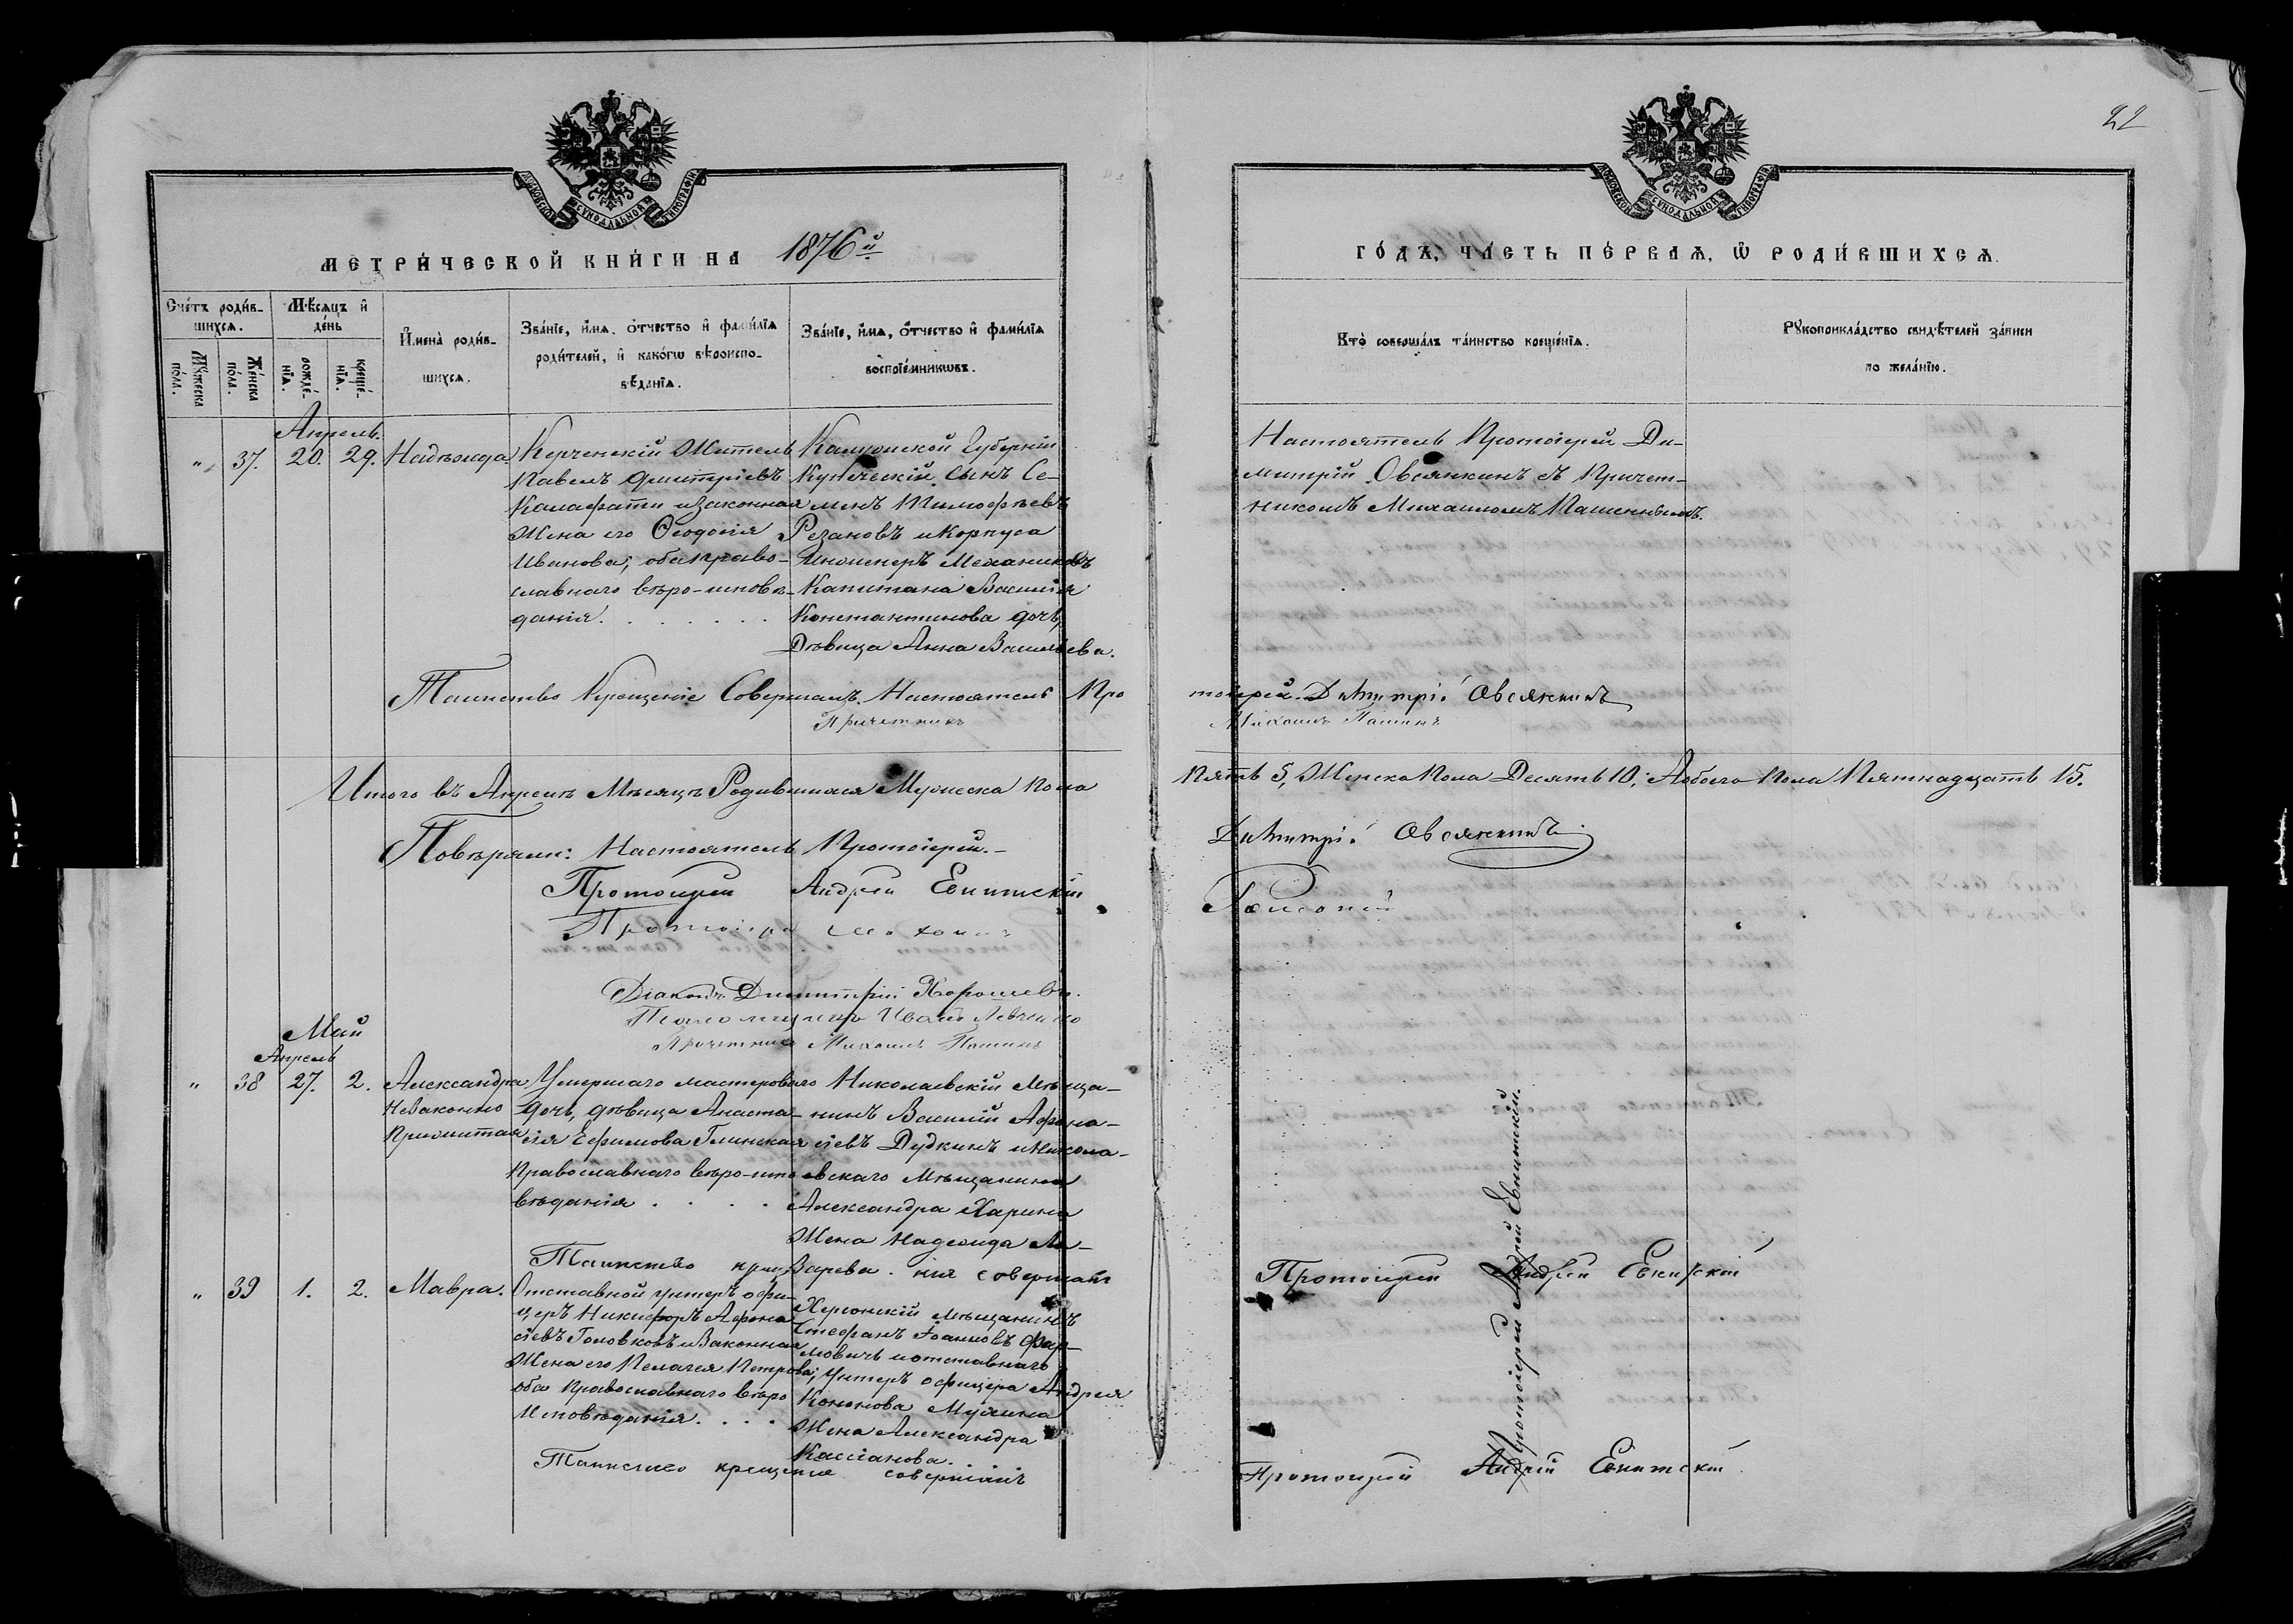 22
МОСКОВСКОЙ СѴНОДАЛЬНОЙ ТИПОГРАФІИ
МОСКОВСКОЙ СѴНОДАЛЬНОЙ ТИПОГРАФІИ
МЕТРИ́ЧЕСКОЙ КНИ́ГИ НА 1876й
ГО́ДЪ, ЧА́СТЬ ПЕ́РВАѦ, Ѿ РОДИ́ВШИХСѦ.
Сче́тъ роди́в-
шихсѧ.
Мꙋ́жеска по́ла.
Же́нска по́ла.
Мѣ́сѧцъ и҆
де́нь
рожде́-
нїѧ.
креще́-
нїѧ.
И҆мена̀ роди́в-
шихсѧ.
Зва́нїе, и҆́мѧ, ѻ҆́тчество и҆ фами́лїѧ
роди́телей, и҆ како́гѡ вѣроиспо-
вѣ́данїѧ.
Зва́нїе, и҆́мѧ, ѻ҆́тчество и҆ фами́лїѧ
воспрїе́мникѡвъ.
Кто̀ соверша́лъ та́инство креще́нїѧ.
Рꙋкоприкла́дство свидѣ́телей за́писи
по жела́нїю.
Апрель.
" 37. 20. 29. Надѣжда.
Керченскій Житель
Павелъ Дмитріевъ
Калафати и законная
Жена его Ѳеодосія
Иванова; оба право-
славнаго вѣро-исповѣ-
данія.
Губерніи
Купеческій Сынъ Се-
менъ Тимофѣевъ
Резановъ и Корпуса
Инженеръ Механиковъ
Капитана Василія
Константинова дочь,
Дѣвица Анна Васильева.
Настоятель Протоіерей Ди-
митрій Овсянкинъ съ Причет-
никомъ Михаиломъ
Таинство Крещеніе Совершалъ Настоятель Про
тоіерей Димитрій Овсянкинъ
Причетникъ
Михаилъ Пашинъ
Итого въ Апрелѣ Мѣсяцѣ Родившихся Мужеска пола
Пять 5, Женска Пола Десять 10; Обоего Пола Пятнадцать 15.
Повѣряли: Настоятель Протоіерей
Димитрій Овсянкинъ
Протоіерей Андрей
Протоіерей
Діаконъ Димитрій Хорошевъ.
Иванъ
Причетникъ Михаилъ Пашинъ
Май
Апрель
" 38 27. 2. Александра
Незаконно
Прижитая
Умершаго мастероваго
дочь, дѣвица Анаста-
сія Ефимова Глинская
Православнаго вѣро-испо
вѣданія
Николаевскій Мѣща-
нинъ Василій Афана-
сіевъ Дудкинъ и Никола-
евскаго Мѣщанина
Александра Харина
Жена Надежда Ла-
зарева.
Таинство крещенія совершалъ
Протоіерей Андрей
" 39 1. 2. Мавра.
Отставной унтеръ офи-
церъ Никифоръ Афана
сіевъ Головковъ и Законная
Жена его Пелагея Петрова;
оба Православнаго вѣро
Исповѣданія.
Херсонскій Мѣщанинъ
Стефанъ Іоанновъ Фар-
мовичъ и отставнаго
унтеръ офицера Андрея
Кононова Мухина
Жена Александра
Кассіанова.
Таинство крещенія совершалъ
Протоіерей Андрей
Протоіерей Андрей